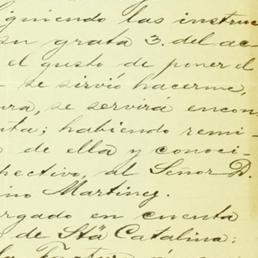 iguiendo las instruc
su grata 3. del ac
el gusto de poner d
se sirvió hacerme,
ura, se servirá encon
ta; habiendo remi
de ella y conoci
pectivo, al Señor D.
ino Martinez.
rgado en cuenta
de Stã Catalina: